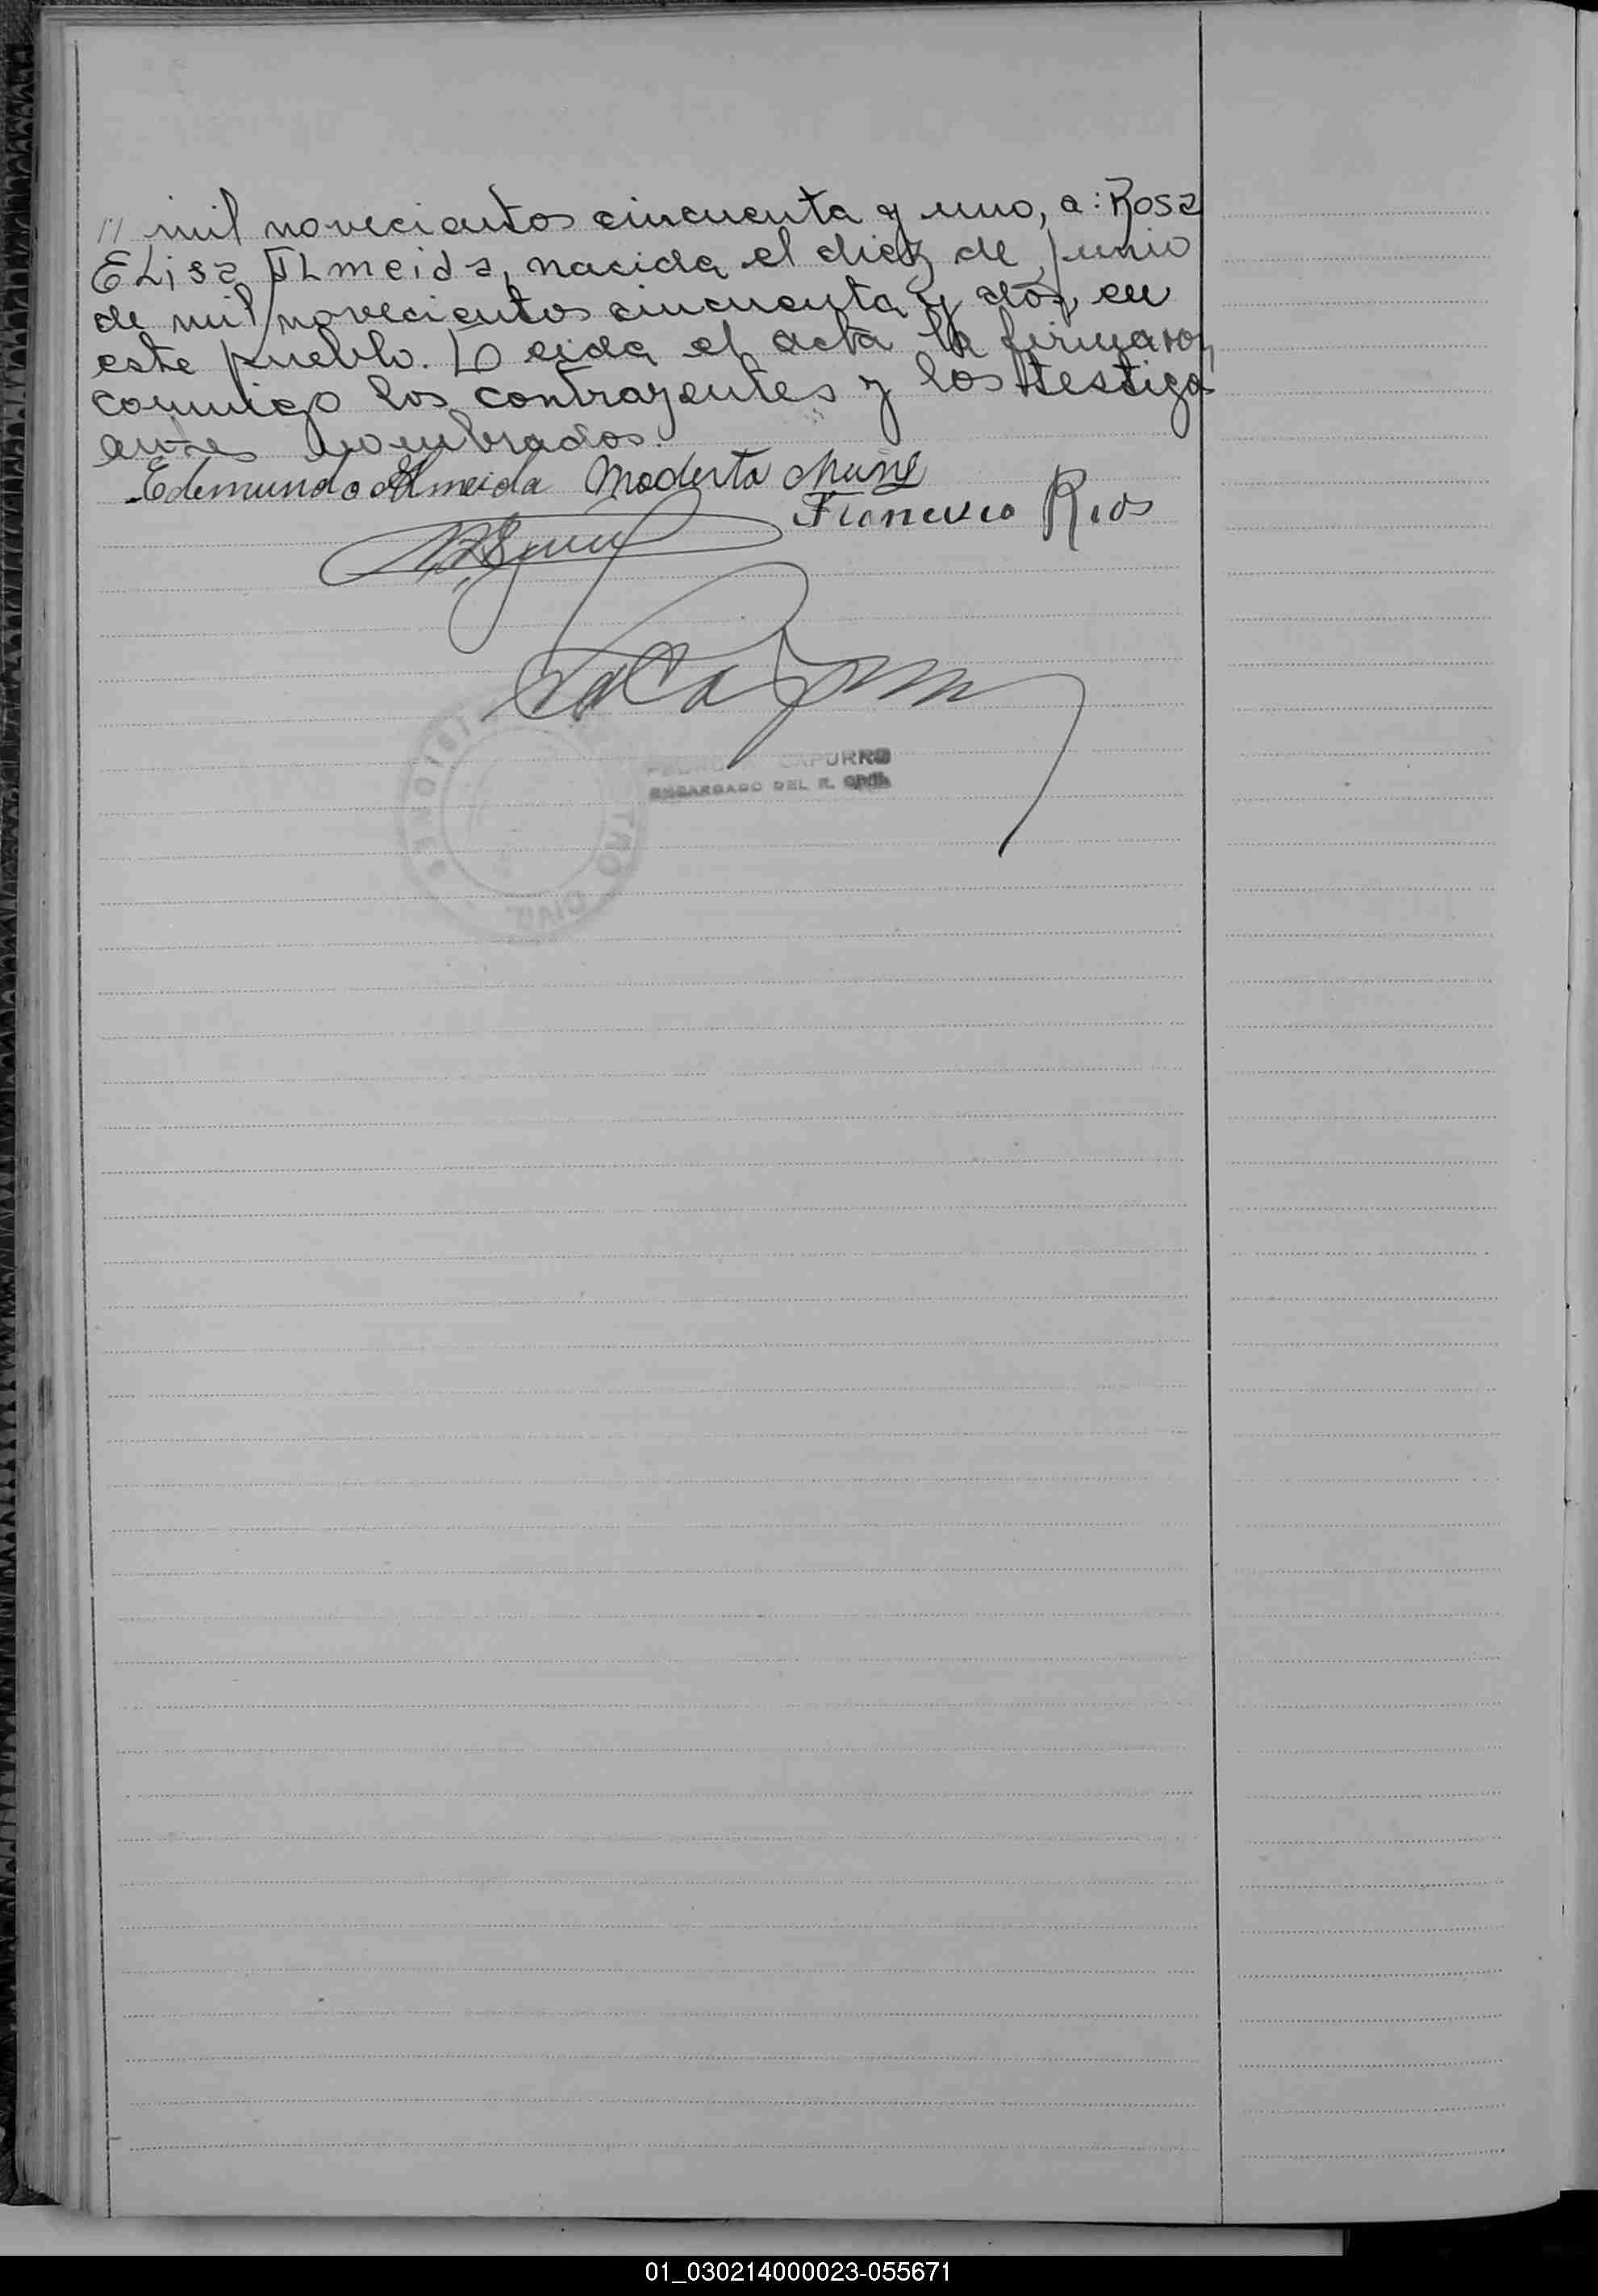 // mil novecientos cincuenta y uno, a: Rosa
Elisa Almeida, nacida el diez de junio
de mil novecientos cincuenta y dos, en
este pueblo. Leida el acta la firmaron
conmigo los contrayentes y los testigos
antes nombrados.
Edemundo Almeida Modesta Muñe
Francisco Rios
CAPURRO
ENCARGADO DEL R. CIVIL
TRO CIVIL
01_030214000023-055671